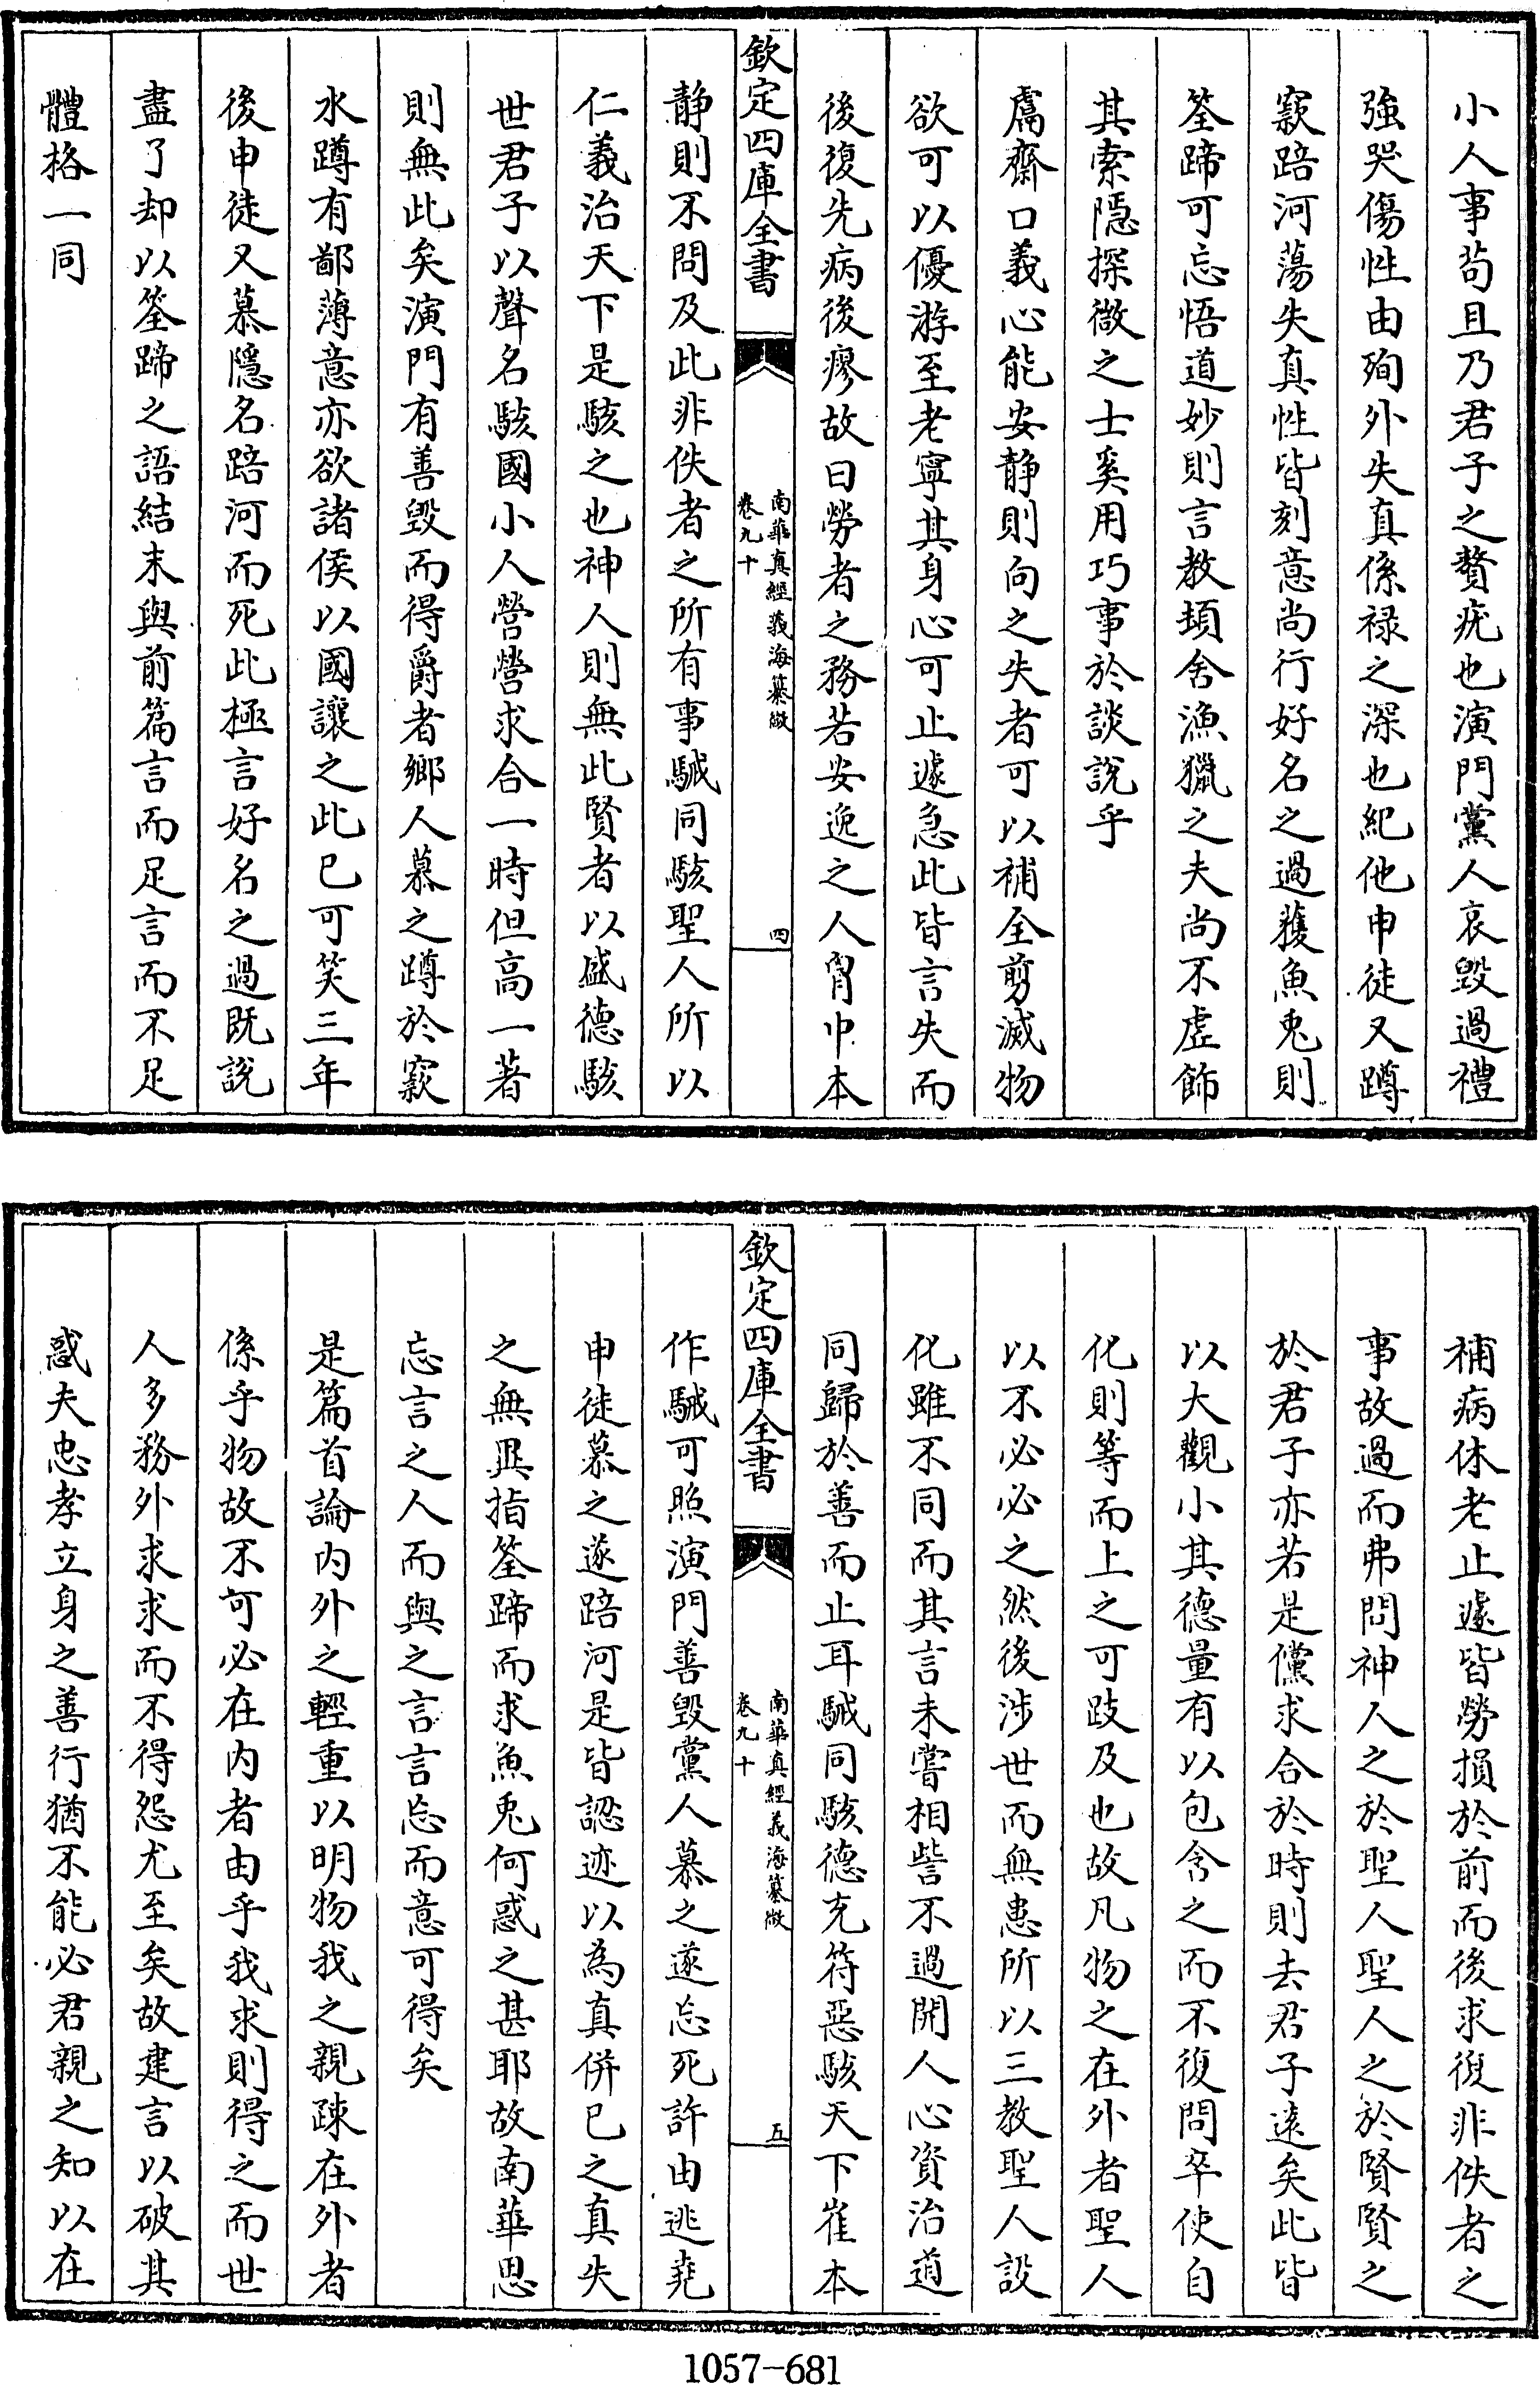 小人事苟且乃君子之贅疣也演門黨人哀毀過禮
強哭傷性由殉外失真係禄之深也紀他申徒又蹲
窾踣河蕩失真性皆刻意尚行好名之過獲魚兎則
筌蹄可忘悟道妙則言教頓舍漁獵之夫尚不虛飾
其索隱探微之士奚用巧事於談說乎
鬳齋口義心能安静則向之失者可以補全剪滅物
欲可以優游至老寧其身心可止遽急此皆言失而
後復先病後瘳故曰勞者之務若安逸之人胷中本
欽定四庫全書
南華真經義海纂微
卷九十
四
静則不問及此非佚者之所有事駴同駭聖人所以
仁義治天下是駭之也神人則無此賢者以盛德駭
世君子以聲名駭國小人營營求合一時但高一著
則無此矣演門有善毀而得爵者鄉人慕之蹲於窾
水蹲有鄙薄意亦欲諸侯以國讓之此已可笑三年
後申徒又慕隱名踣河而死此極言好名之過既說
盡了却以筌蹄之語結末與前篇言而足言而不足
體格一同
補病休老止遽皆勞損於前而後求復非佚者之
事故過而弗問神人之於聖人聖人之於賢賢之
於君子亦若是儻求合於時則去君子遠矣此皆
以大觀小其德量有以包含之而不復問卒使自
化則等而上之可跂及也故凡物之在外者聖人
以不必必之然後涉世而無患所以三教聖人設
化雖不同而其言未嘗相訾不過開人心資治道
同歸於善而止耳駴同駭德充符惡駭天下崔本
欽定四庫全書
南華真經義海纂微
卷九十
五
作駴可照演門善毀黨人慕之遂忘死許由逃堯
申徒慕之遂踣河是皆認迹以為真併已之真失
之無異指筌蹄而求魚兎何惑之甚耶故南華思
忘言之人而與之言言忘而意可得矣
是篇首論内外之輕重以明物我之親疎在外者
係乎物故不可必在内者由乎我求則得之而世
人多務外求求而不得怨尤至矣故建言以破其
惑夫忠孝立身之善行猶不能必君親之知以在
1057-681